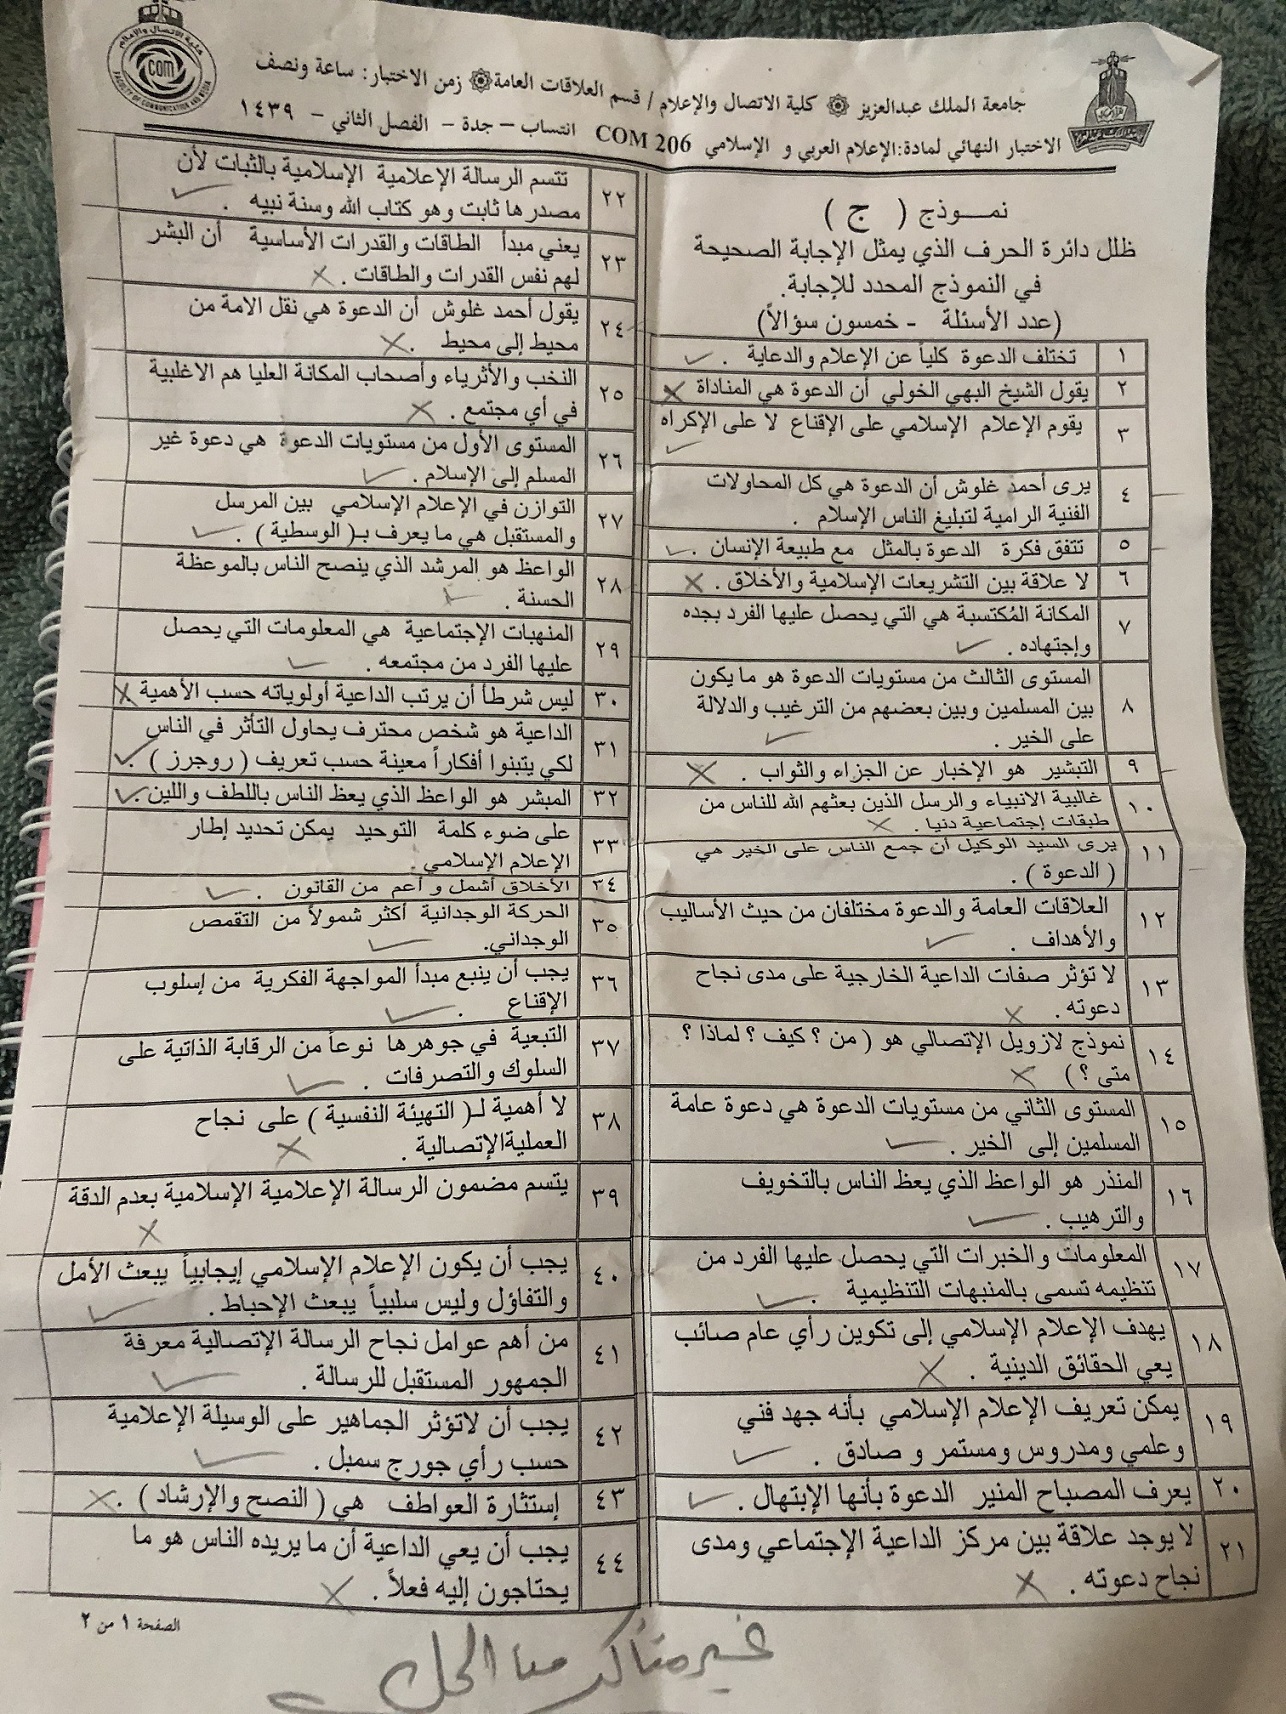 جامعة الملك عبدالعزيز ۞ كلية الاتصال والإعلام / قسم العلاقات العامة ۞ زمن الاختبار: ساعة ونصف
الاختبار النهائي لمادة:الإعلام العربي و الإسلامي COM 206 انتساب – جدة – الفصل الثاني – ١٤٣٩
كلية الاتصال والإعلام
COM
FACULTY OF COMMUNICATION AND MEDIA
نمــوذج ( ج )
ظلل دائرة الحرف الذي يمثل الإجابة الصحيحة
في النموذج المحدد للإجابة.
(عدد الأسئلة - خمسون سؤالاً)
١ تختلف الدعوة كلياً عن الإعلام والدعاية . ✓
٢ يقول الشيخ البهي الخولي أن الدعوة هي المناداة ✗
٣ يقوم الإعلام الإسلامي على الإقناع لا على الإكراه
✓
٤ يرى أحمد غلوش أن الدعوة هي كل المحاولات
الفنية الرامية لتبليغ الناس الإسلام .
٥ تتفق فكرة الدعوة بالمثل مع طبيعة الإنسان . ✓
٦ لا علاقة بين التشريعات الإسلامية والأخلاق . ✗
٧ المكانة المُكتسبة هي التي يحصل عليها الفرد بجده
وإجتهاده . ✓
٨ المستوى الثالث من مستويات الدعوة هو ما يكون
بين المسلمين وبين بعضهم من الترغيب والدلالة
على الخير . ✓
٩ التبشير هو الإخبار عن الجزاء والثواب . ✗
١٠ غالبية الانبياء والرسل الذين بعثهم الله للناس من
طبقات إجتماعية دنيا . ✗
١١ يرى السيد الوكيل أن جمع الناس على الخير هي
( الدعوة ) .
١٢ العلاقات العامة والدعوة مختلفان من حيث الأساليب
والأهداف . ✓
١٣ لا تؤثر صفات الداعية الخارجية على مدى نجاح
دعوته . ✗
١٤ نموذج لازويل الإتصالي هو ( من ؟ كيف ؟ لماذا ؟
متى ؟ ) ✗
١٥ المستوى الثاني من مستويات الدعوة هي دعوة عامة
المسلمين إلى الخير . ✓
١٦ المنذر هو الواعظ الذي يعظ الناس بالتخويف
والترهيب . ✓
١٧ المعلومات والخبرات التي يحصل عليها الفرد من
تنظيمه تسمى بالمنبهات التنظيمية . ✓
١٨ يهدف الإعلام الإسلامي إلى تكوين رأي عام صائب
يعي الحقائق الدينية . ✗
١٩ يمكن تعريف الإعلام الإسلامي بأنه جهد فني
وعلمي ومدروس ومستمر و صادق . ✓
٢٠ يعرف المصباح المنير الدعوة بأنها الإبتهال . ✓
٢١ لا يوجد علاقة بين مركز الداعية الإجتماعي ومدى
نجاح دعوته . ✗
٢٢ تتسم الرسالة الإعلامية الإسلامية بالثبات لأن
مصدرها ثابت وهو كتاب الله وسنة نبيه . ✓
٢٣ يعني مبدأ الطاقات والقدرات الأساسية أن البشر
لهم نفس القدرات والطاقات . ✗
٢٤ يقول أحمد غلوش أن الدعوة هي نقل الامة من
محيط إلى محيط . ✗
٢٥ النخب والأثرياء وأصحاب المكانة العليا هم الاغلبية
في أي مجتمع . ✗
٢٦ المستوى الأول من مستويات الدعوة هي دعوة غير
المسلم إلى الإسلام . ✓
٢٧ التوازن في الإعلام الإسلامي بين المرسل
والمستقبل هي ما يعرف بـ( الوسطية ) . ✓
٢٨ الواعظ هو المرشد الذي ينصح الناس بالموعظة
الحسنة . ✓
٢٩ المنهبات الإجتماعية هي المعلومات التي يحصل
عليها الفرد من مجتمعه . ✓
٣٠ ليس شرطاً أن يرتب الداعية أولوياته حسب الأهمية ✗
٣١ الداعية هو شخص محترف يحاول التأثر في الناس
لكي يتبنوا أفكاراً معينة حسب تعريف ( روجرز ) . ✓
٣٢ المبشر هو الواعظ الذي يعظ الناس باللطف واللين . ✓
٣٣ على ضوء كلمة التوحيد يمكن تحديد إطار
الإعلام الإسلامي .
٣٤ الأخلاق أشمل و أعم من القانون . ✓
٣٥ الحركة الوجدانية أكثر شمولاً من التقمص
الوجداني. ✓
٣٦ يجب أن ينبع مبدأ المواجهة الفكرية من إسلوب
الإقناع . ✓
٣٧ التبعية في جوهرها نوعاً من الرقابة الذاتية على
السلوك والتصرفات . ✓
٣٨ لا أهمية لـ( التهيئة النفسية ) على نجاح
العملية الإتصالية . ✗
٣٩ يتسم مضمون الرسالة الإعلامية الإسلامية بعدم الدقة
✗
٤٠ يجب أن يكون الإعلام الإسلامي إيجابياً يبعث الأمل
والتفاؤل وليس سلبياً يبعث الإحباط . ✓
٤١ من أهم عوامل نجاح الرسالة الإتصالية معرفة
الجمهور المستقبل للرسالة . ✓
٤٢ يجب أن لاتؤثر الجماهير على الوسيلة الإعلامية
حسب رأي جورج سمبل . ✓
٤٣ إستثارة العواطف هي ( النصح والإرشاد ) . ✗
٤٤ يجب أن يعي الداعية أن ما يريده الناس هو ما
يحتاجون إليه فعلاً . ✗
الصفحة ١ من ٢
غير متأكد من الحل